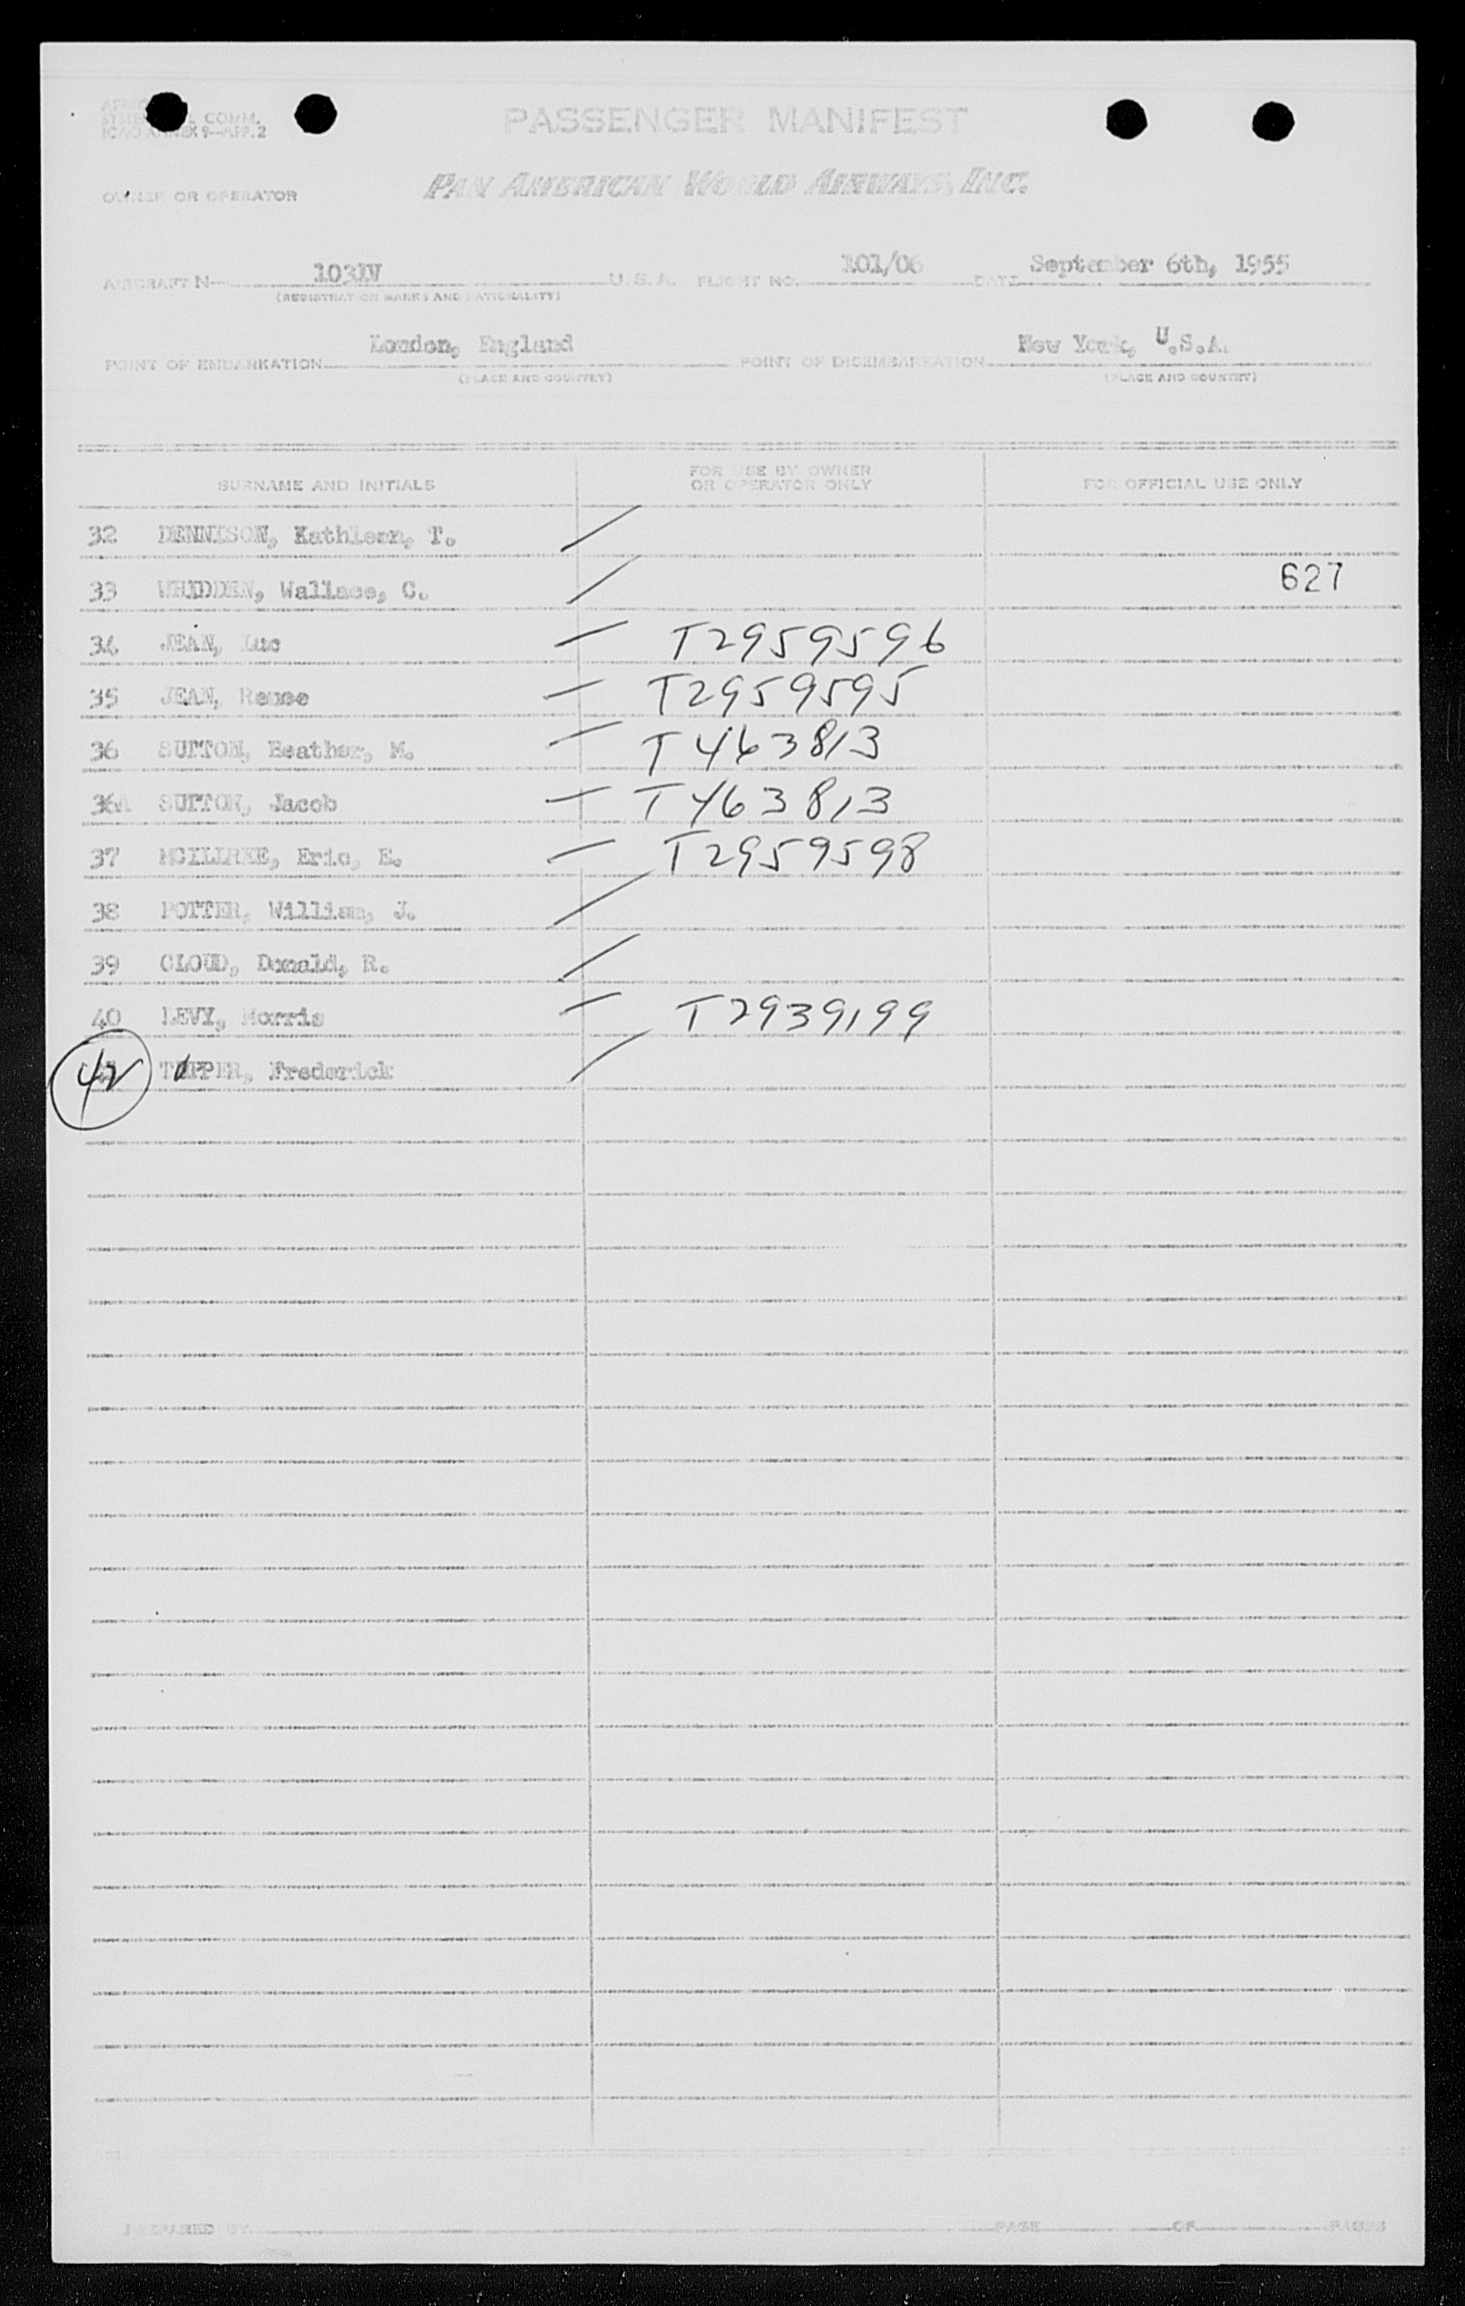 COMM.
ICAO ANNEX 9—APP. 2
PASSENGER MANIFEST
OWNER OR OPERATOR
PAN AMERICAN WORLD AIRWAYS, INC.
AIRCRAFT N— 1031V U.S.A. FLIGHT NO. 101/06 DATE September 6th, 1955
(REGISTRATION MARKS AND NATIONALITY)
POINT OF EMBARKATION London, England POINT OF DISEMBARKATION New York, U.S.A.
(PLACE AND COUNTRY) (PLACE AND COUNTRY)
SURNAME AND INITIALS FOR USE BY OWNER OR OPERATOR ONLY FOR OFFICIAL USE ONLY
32 DENNISON, Kathleen, T. /
33 Wallace, C. / 627
34 JEAN, Luc — T2959596
35 JEAN, Renee — T2959595
36 SUTTON, Heather, M. — T463813
36A SUTTON, Jacob — T463813
37 MCILIREE, Eric, E. — T2959598
38 POTTER, William, J. /
39 CLOUD, Donald, R. /
40 LEVY, Morris — T2939199
42 Frederick /
PREPARED BY PAGE OF PAGES